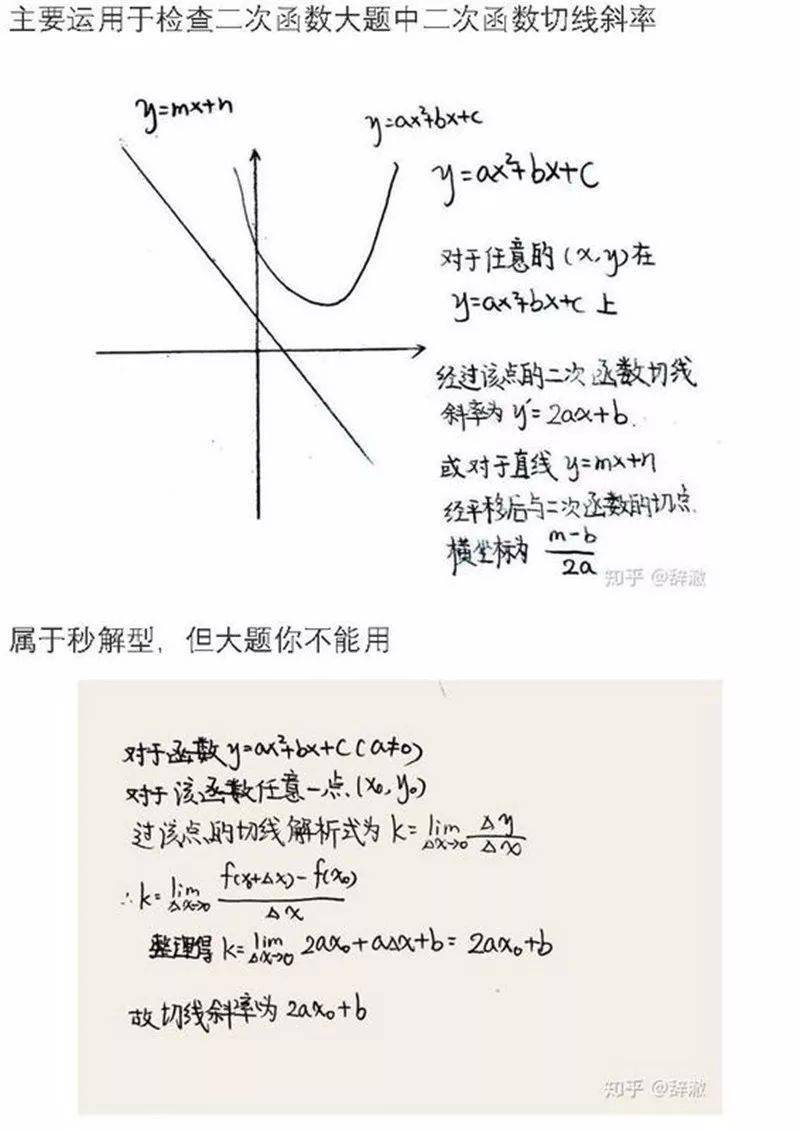 主要运用于检查二次函数大题中二次函数切线斜率
y=mx+n
y=ax²+bx+c
y=ax²+bx+c
对于任意的(x,y)在
y=ax²+bx+c 上
经过该点的二次函数切线
斜率为 y'=2ax+b.
或对于直线 y=mx+n
经平移后与二次函数的切点
横坐标为 \frac{m-b}{2a}
知乎 @辞澈
属于秒解型，但大题你不能用
对于函数 y=ax²+bx+c (a≠0)
对于该函数任意一点(x₀,y₀)
过该点的切线解析式为 k=\lim_{Δx→0} \frac{Δy}{Δx}
∴k=\lim_{Δx→0} \frac{f(x₀+Δx)-f(x₀)}{Δx}
整理得 k=\lim_{Δx→0} 2ax₀+aΔx+b=2ax₀+b
故切线斜率为 2ax₀+b
知乎 @辞澈